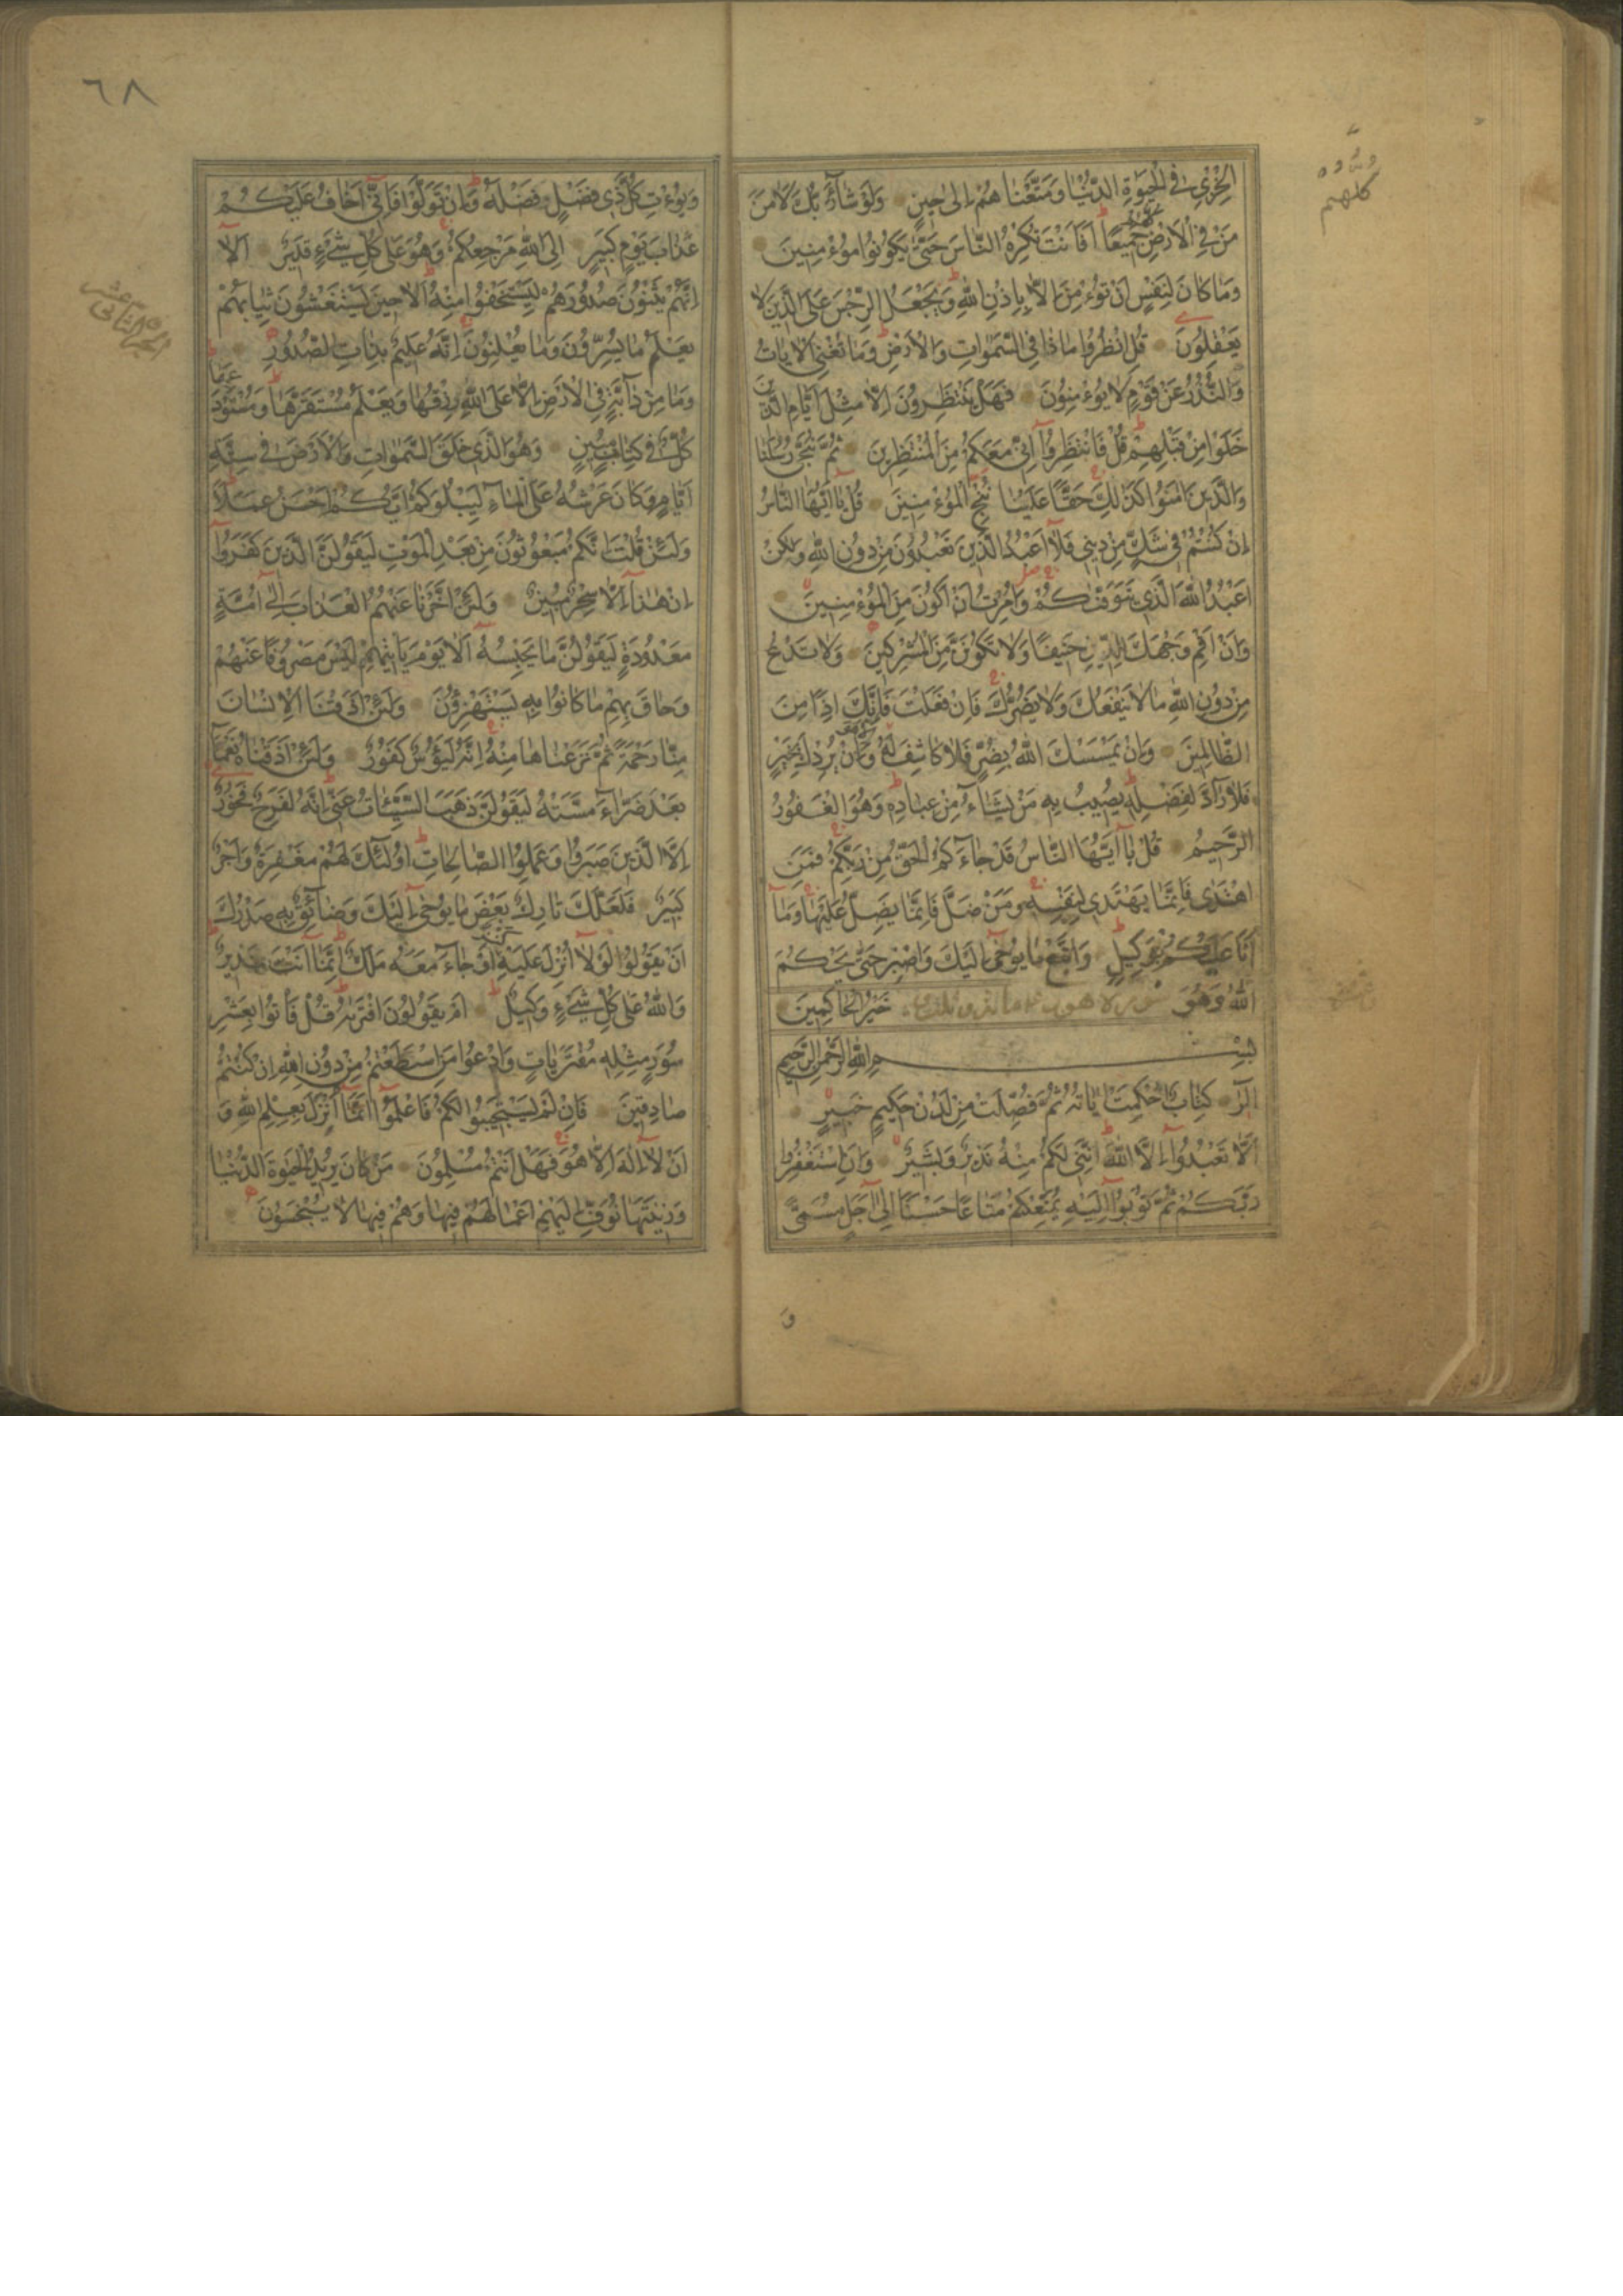 الْخِزْيِ فِي الْحَيٰوةِ الدُّنْيٰا وَمَتَّعْنٰاهُمْ اِلىٰ حِينٍ وَلَوْ شٰآءَ رَبُّكَ لَاٰمَنَ
مَنْ فِي الْاَرْضِ كُلُّهُمْ جَمِيعًا اَفَاَنْتَ تُكْرِهُ النّٰاسَ حَتّٰى يَكُونُوا مُؤْمِنِينَ
وَمٰا كٰانَ لِنَفْسٍ اَنْ تُؤْمِنَ اِلّٰا بِاِذْنِ اللّٰهِ وَيَجْعَلُ الرِّجْسَ عَلَى الَّذِينَ لٰا
يَعْقِلُونَ قُلِ انْظُرُوا مٰاذٰا فِي السَّمٰوٰاتِ وَالْاَرْضِ وَمٰا تُغْنِي الْاٰيٰاتُ
وَالنُّذُرُ عَنْ قَوْمٍ لٰا يُؤْمِنُونَ فَهَلْ يَنْتَظِرُونَ اِلّٰا مِثْلَ اَيّٰامِ الَّذِينَ
خَلَوْا مِنْ قَبْلِهِمْ قُلْ فَانْتَظِرُوٓا اِنِّي مَعَكُمْ مِنَ الْمُنْتَظِرِينَ ثُمَّ نُنَجِّي رُسُلَنٰا
وَالَّذِينَ اٰمَنُوا كَذٰلِكَ حَقًّا عَلَيْنٰا نُنْجِ الْمُؤْمِنِينَ قُلْ يٰآ اَيُّهَا النّٰاسُ
اِنْ كُنْتُمْ فِي شَكٍّ مِنْ دِينِي فَلٰآ اَعْبُدُ الَّذِينَ تَعْبُدُونَ مِنْ دُونِ اللّٰهِ وَلٰكِنْ
اَعْبُدُ اللّٰهَ الَّذِي يَتَوَفّٰكُمْ وَاُمِرْتُ اَنْ اَكُونَ مِنَ الْمُؤْمِنِينَ
وَاَنْ اَقِمْ وَجْهَكَ لِلدِّينِ حَنِيفًا وَلٰا تَكُونَنَّ مِنَ الْمُشْرِكِينَ وَلٰا تَدْعُ
مِنْ دُونِ اللّٰهِ مٰا لٰا يَنْفَعُكَ وَلٰا يَضُرُّكَ فَاِنْ فَعَلْتَ فَاِنَّكَ اِذًا مِنَ
الظّٰالِمِينَ وَاِنْ يَمْسَسْكَ اللّٰهُ بِضُرٍّ فَلٰا كٰاشِفَ لَهُٓ اِلّٰا هُوَ وَاِنْ يُرِدْكَ بِخَيْرٍ
فَلٰا رٰآدَّ لِفَضْلِهِ يُصِيبُ بِهِ مَنْ يَشٰآءُ مِنْ عِبٰادِهِ وَهُوَ الْغَفُورُ
الرَّحِيمُ قُلْ يٰآ اَيُّهَا النّٰاسُ قَدْ جٰآءَكُمُ الْحَقُّ مِنْ رَبِّكُمْ فَمَنِ
اهْتَدٰى فَاِنَّمٰا يَهْتَدِي لِنَفْسِهِ وَمَنْ ضَلَّ فَاِنَّمٰا يَضِلُّ عَلَيْهٰا وَمٰآ
اَنَا عَلَيْكُمْ بِوَكِيلٍ وَاتَّبِعْ مٰا يُوحٰىٓ اِلَيْكَ وَاصْبِرْ حَتّٰى يَحْكُمَ
اللّٰهُ وَهُوَ خَيْرُ الْحٰاكِمِينَ
بِسْمِ اللّٰهِ الرَّحْمٰنِ الرَّحِيمِ
الٓرٰ كِتٰابٌ اُحْكِمَتْ اٰيٰاتُهُ ثُمَّ فُصِّلَتْ مِنْ لَدُنْ حَكِيمٍ خَبِيرٍ
اَلّٰا تَعْبُدُوٓا اِلَّا اللّٰهَ اِنَّنِي لَكُمْ مِنْهُ نَذِيرٌ وَبَشِيرٌ وَاَنِ اسْتَغْفِرُوا
رَبَّكُمْ ثُمَّ تُوبُوٓا اِلَيْهِ يُمَتِّعْكُمْ مَتٰاعًا حَسَنًا اِلىٰٓ اَجَلٍ مُسَمًّى
وَ
كلهم
٦٨
وَيُؤْتِ كُلَّ ذِي فَضْلٍ فَضْلَهُ وَاِنْ تَوَلَّوْا فَاِنِّيٓ اَخٰافُ عَلَيْكُمْ
عَذٰابَ يَوْمٍ كَبِيرٍ اِلَى اللّٰهِ مَرْجِعُكُمْ وَهُوَ عَلىٰ كُلِّ شَيْءٍ قَدِيرٌ اَلٰآ
اِنَّهُمْ يَثْنُونَ صُدُورَهُمْ لِيَسْتَخْفُوا مِنْهُ اَلٰا حِينَ يَسْتَغْشُونَ ثِيٰابَهُمْ
يَعْلَمُ مٰا يُسِرُّونَ وَمٰا يُعْلِنُونَ اِنَّهُ عَلِيمٌ بِذٰاتِ الصُّدُورِ
وَمٰا مِنْ دٰآبَّةٍ فِي الْاَرْضِ اِلّٰا عَلَى اللّٰهِ رِزْقُهٰا وَيَعْلَمُ مُسْتَقَرَّهٰا وَمُسْتَوْدَعَهٰا
كُلٌّ فِي كِتٰابٍ مُبِينٍ وَهُوَ الَّذِي خَلَقَ السَّمٰوٰاتِ وَالْاَرْضَ فِي سِتَّةِ
اَيّٰامٍ وَكٰانَ عَرْشُهُ عَلَى الْمٰآءِ لِيَبْلُوَكُمْ اَيُّكُمْ اَحْسَنُ عَمَلًا
وَلَئِنْ قُلْتَ اِنَّكُمْ مَبْعُوثُونَ مِنْ بَعْدِ الْمَوْتِ لَيَقُولَنَّ الَّذِينَ كَفَرُوٓا
اِنْ هٰذٰآ اِلّٰا سِحْرٌ مُبِينٌ وَلَئِنْ اَخَّرْنٰا عَنْهُمُ الْعَذٰابَ اِلىٰٓ اُمَّةٍ
مَعْدُودَةٍ لَيَقُولُنَّ مٰا يَحْبِسُهُ اَلٰا يَوْمَ يَاْتِيهِمْ لَيْسَ مَصْرُوفًا عَنْهُمْ
وَحٰاقَ بِهِمْ مٰا كٰانُوا بِهِ يَسْتَهْزِؤُنَ وَلَئِنْ اَذَقْنَا الْاِنْسٰانَ
مِنّٰا رَحْمَةً ثُمَّ نَزَعْنٰاهٰا مِنْهُ اِنَّهُ لَيَؤُسٌ كَفُورٌ وَلَئِنْ اَذَقْنٰاهُ نَعْمٰآءَ
بَعْدَ ضَرّٰآءَ مَسَّتْهُ لَيَقُولَنَّ ذَهَبَ السَّيِّئٰاتُ عَنِّي اِنَّهُ لَفَرِحٌ فَخُورٌ
اِلَّا الَّذِينَ صَبَرُوا وَعَمِلُوا الصّٰالِحٰاتِ اُولٰٓئِكَ لَهُمْ مَغْفِرَةٌ وَاَجْرٌ
كَبِيرٌ فَلَعَلَّكَ تٰارِكٌ بَعْضَ مٰا يُوحٰىٓ اِلَيْكَ وَضٰآئِقٌ بِهِ صَدْرُكَ
اَنْ يَقُولُوا لَوْلٰآ اُنْزِلَ عَلَيْهِ كَنْزٌ اَوْ جٰآءَ مَعَهُ مَلَكٌ اِنَّمٰآ اَنْتَ نَذِيرٌ
وَاللّٰهُ عَلىٰ كُلِّ شَيْءٍ وَكِيلٌ اَمْ يَقُولُونَ افْتَرٰيهُ قُلْ فَاْتُوا بِعَشْرِ
سُوَرٍ مِثْلِهِ مُفْتَرَيٰاتٍ وَادْعُوا مَنِ اسْتَطَعْتُمْ مِنْ دُونِ اللّٰهِ اِنْ كُنْتُمْ
صٰادِقِينَ فَاِنْ لَمْ يَسْتَجِيبُوا لَكُمْ فَاعْلَمُوٓا اَنَّمٰآ اُنْزِلَ بِعِلْمِ اللّٰهِ وَ
اَنْ لٰآ اِلٰهَ اِلّٰا هُوَ فَهَلْ اَنْتُمْ مُسْلِمُونَ مَنْ كٰانَ يُرِيدُ الْحَيٰوةَ الدُّنْيٰا
وَزِينَتَهٰا نُوَفِّ اِلَيْهِمْ اَعْمٰالَهُمْ فِيهٰا وَهُمْ فِيهٰا لٰا يُبْخَسُونَ
الجزء الثاني عشر